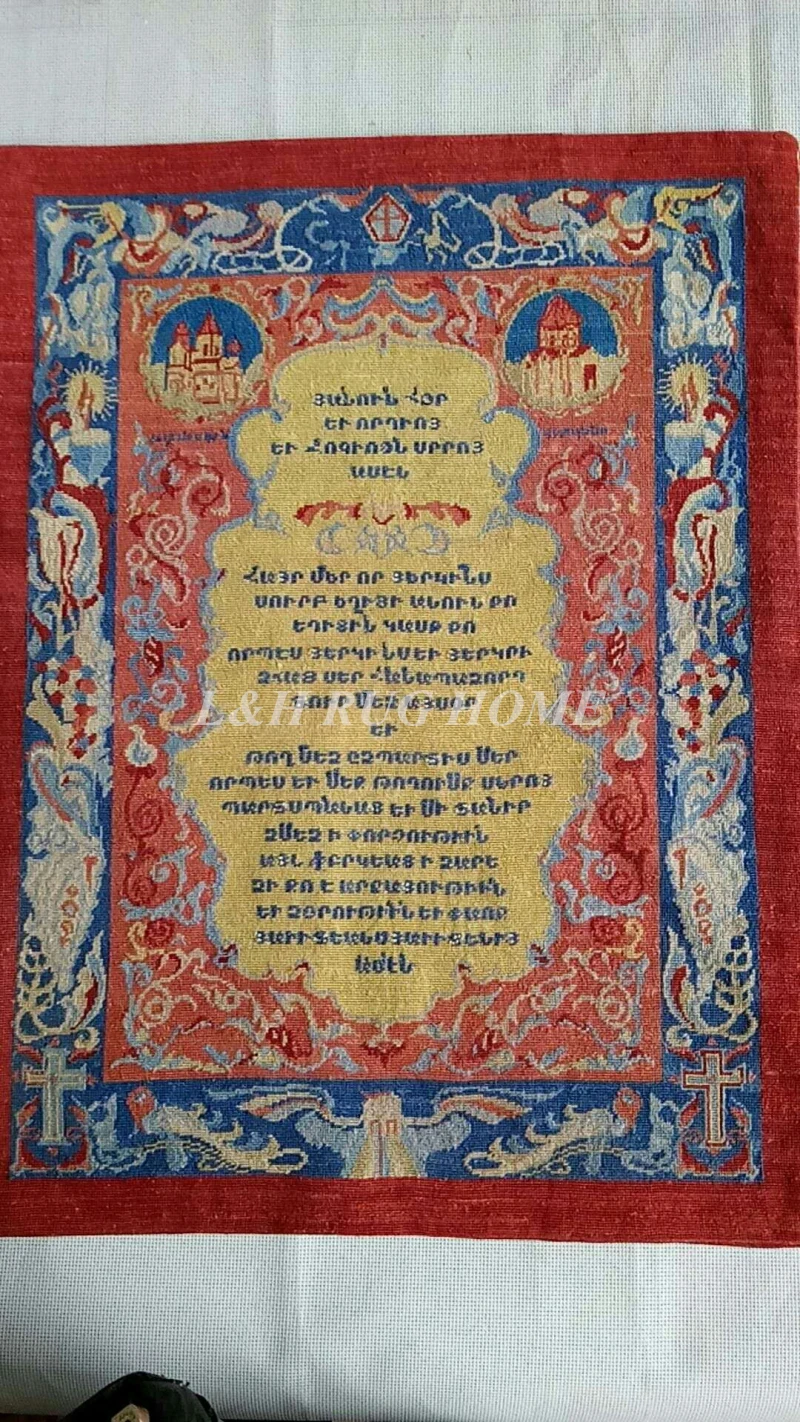 ՅԱՆՈՒՆ ՀՕՐ
ԵՒ ՈՐԴՒՈՅ
ԵՒ ՀՈԳՒՈՅՆ ՍՐԲՈՅ
ԱՄԷՆ
ՀԱՅՐ ՄԵՐ ՈՐ ՅԵՐԿԻՆՍ
ՍՈՒՐԲ ԵՂԻՑԻ ԱՆՈՒՆ ՔՈ
ԵԿԵՍՑԷ ԿԱՄՔ ՔՈ
ՈՐՊԵՍ ՅԵՐԿԻՆՍ ԵՒ ՅԵՐԿՐԻ
ԶՀԱՑ ՄԵՐ ՀԱՆԱՊԱԶՈՐԴ
ՏՈՒՐ ՄԵԶ ԱՅՍՕՐ
ԵՒ
ԹՈՂ ՄԵԶ ԶՊԱՐՏԻՍ ՄԵՐ
ՈՐՊԵՍ ԵՒ ՄԵՔ ԹՈՂՈՒՄՔ ՄԵՐՈՅ
ՊԱՐՏԱՊԱՆԱՑ ԵՒ ՄԻ ՏԱՆԻՐ
ԶՄԵԶ Ի ՓՈՐՁՈՒԹԻՒՆ
ԱՅԼ ՓՐԿԵԱՑ Ի ՉԱՐԷ
ԶԻ ՔՈ Է ԱՐՔԱՅՈՒԹԻՒՆ
ԵՒ ԶՕՐՈՒԹԻՒՆ ԵՒ ՓԱՌՔ
ՅԱՒԻՏԵԱՆՍ ՅԱՒԻՏԵՆԻՑ
ԱՄԷՆ
L&H RUG HOME